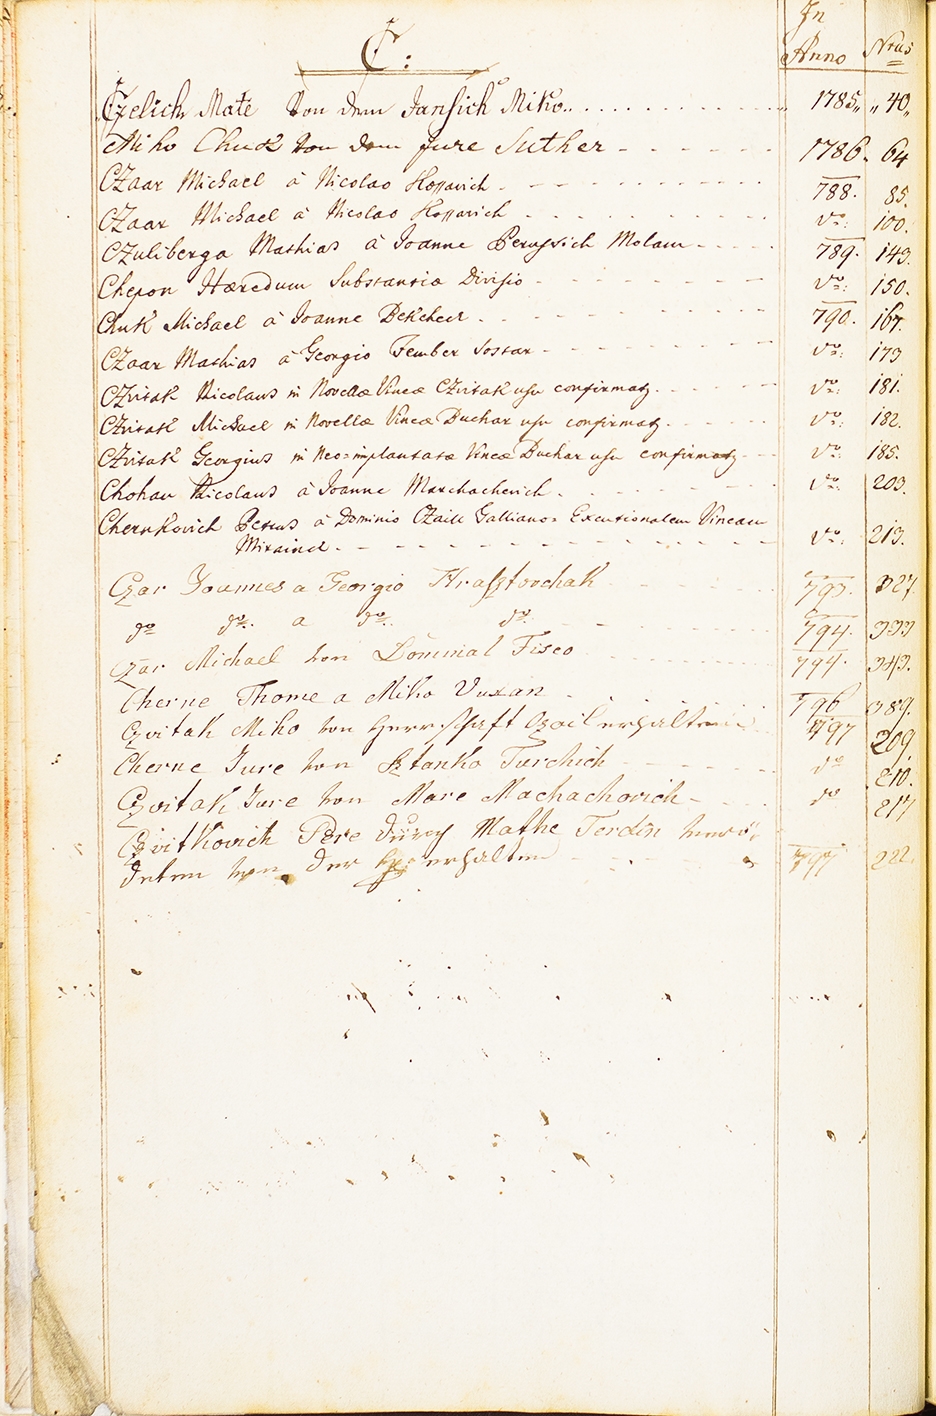 C:
In Anno Nrus
Czelich Mate Von dem Jansich Miko.. 1785„ „40„
Miho Chuck von dem Jure Suther - - - - - - 1786. 64
CZaar Michael à Nicolao Kossarich - - - - - - 788. 85.
CZaar Michael à Nicolao Kossarich - - - - - - do: 100.
CZuliberga Mathias à Joanne Perussich Molam - - - - 789. 143.
Chepon Hæredum Substantiæ Divisio - - - - - - do: 150.
Chuk Michael à Joanne Dekcheer - - - - - - 790. 167.
CZaar Mathias à Georgio Fember Sostar - - - - - - do: 173
CZvitak Nicolaus in Novellæ Vineæ CZvitak usu confirmatz - - - - do: 181.
CZvitak Michael in Novellæ Vineæ Duchar usu confirmatz - - - - do: 182.
CZvitak Georgius in Neo=implantatæ Vineæ Duchar usu confirmatz - - do: 185.
Chohau Nicolaus à Joanne Marchacherich - - - - - do: 203.
Chernkovich Petrus à Dominio CZaill Galliano= Excutionalem Vineam
Miraind - - - - - - - - do: 213.
Czar Joannes a Georgio Hrasztovchak - - - - 793. 327
do do. a do. do. - - - - 794. 333
Czar Michael von Dominal Fisco - - - - 794. 343.
Cherne Thome a Miko Vuxan - - - - 796 389.
Czvitak Miko von Herrschaft Czail erhalten 1797 209
Cherne Jure von Sztanko Turchich - - - - do 210.
Czvitak Jure von Mare Machachovich - - - - do 217
Czvitkovich Pere Mathe Terdin
von der erhalten - - - - 1797 222.